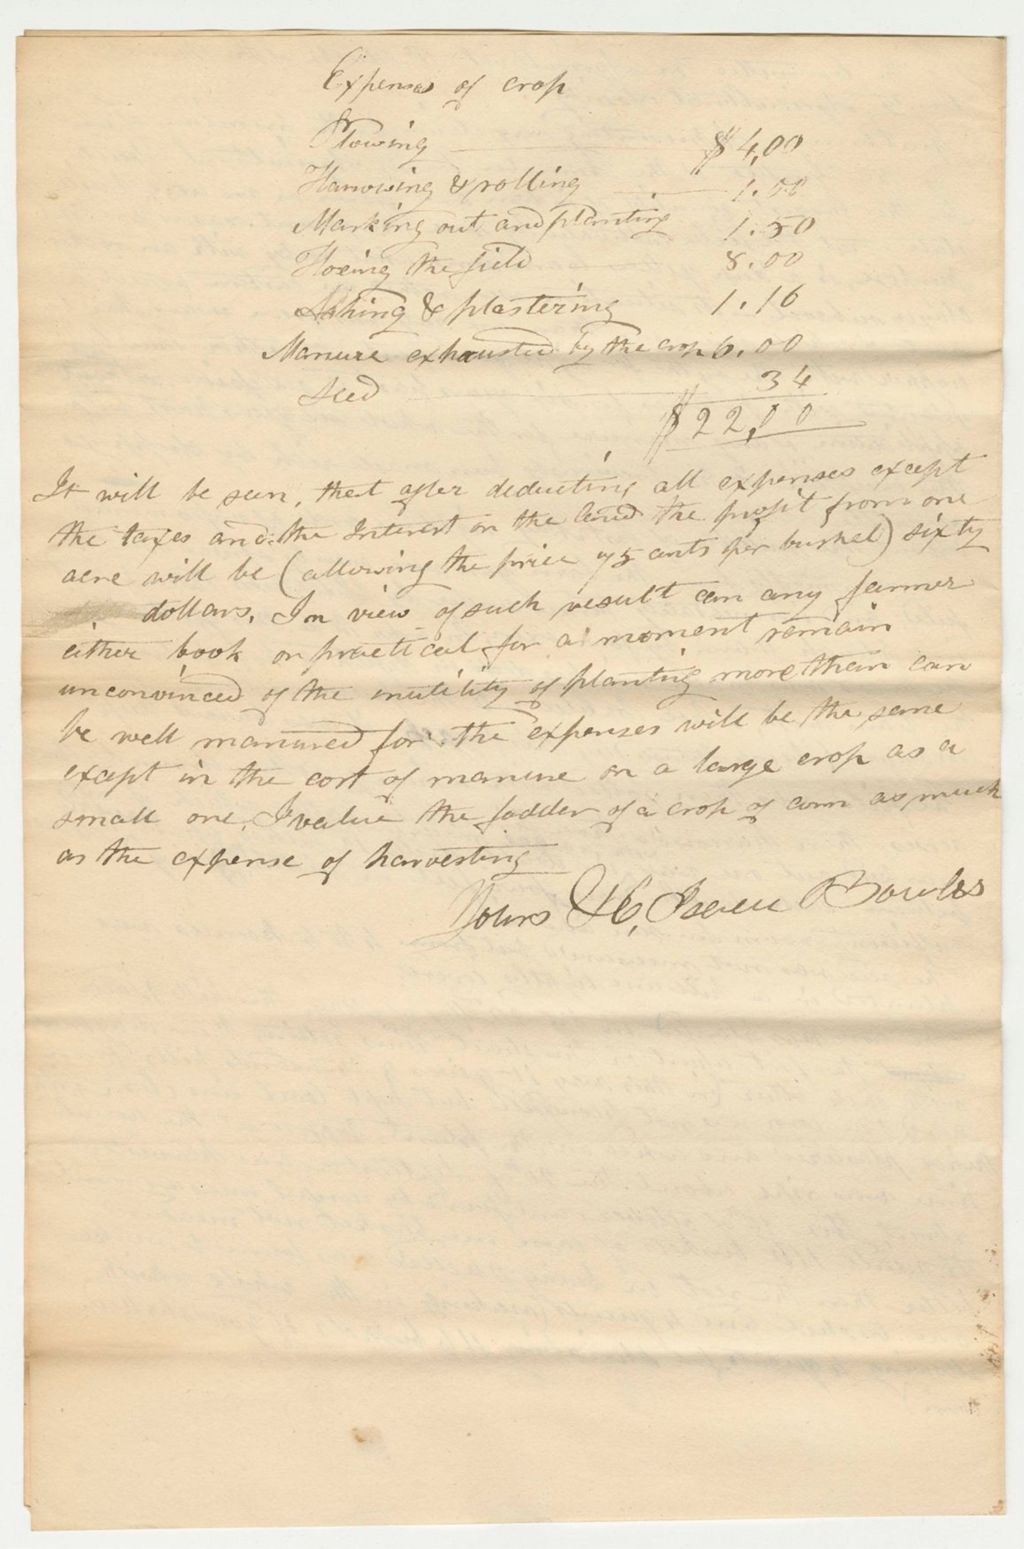 Expenses of crop
Plowing $4,00
Harrowing & rolling 1.00
Marking out and planting 1.50
Hoeing the field 8.00
Ashing & plastering 1.16
Manure exhausted by the crop 6.00
Seed 34
$22,00
It will be seen, that after deducting all expenses except
the taxes and the Interest on the land the profit from one
acre will be (allowing the price 75 cents per bushel) sixty
dollars. In view of such result can any farmer
either book or practical for a moment remain
unconvinced of the inutility of planting more than can
be well manured for the expenses will be the same
except in the cost of manure on a large crop as a
small one. I value the fodder of a crop of corn as much
as the expense of harvesting
Yours &C, Bowles